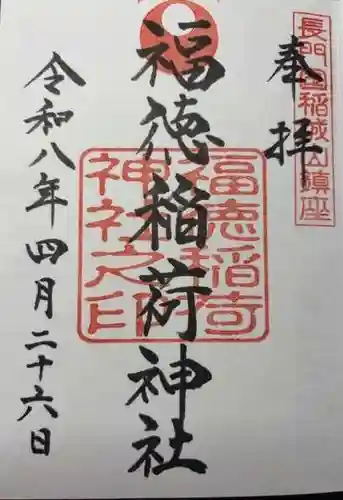 長門国稲城山鎮座
奉拝
福徳稲荷神社
福徳稲荷
神社之印
令和八年四月二十六日